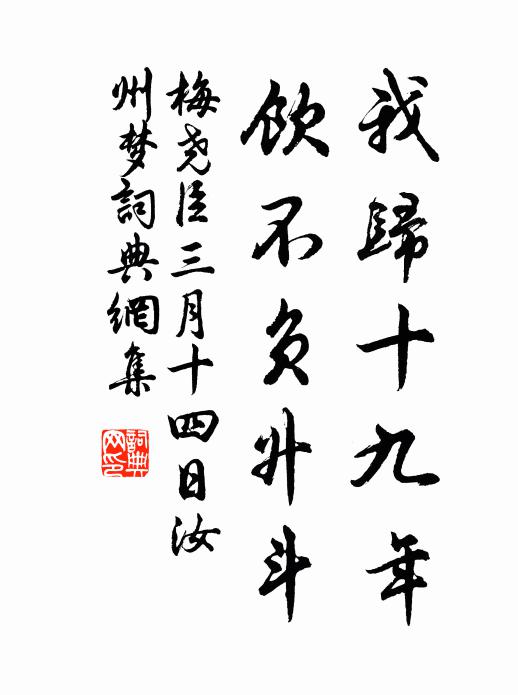 我歸十九年
飲不負升斗
梅尧臣三月十四日汝
州梦詞典網集
詞典
网印